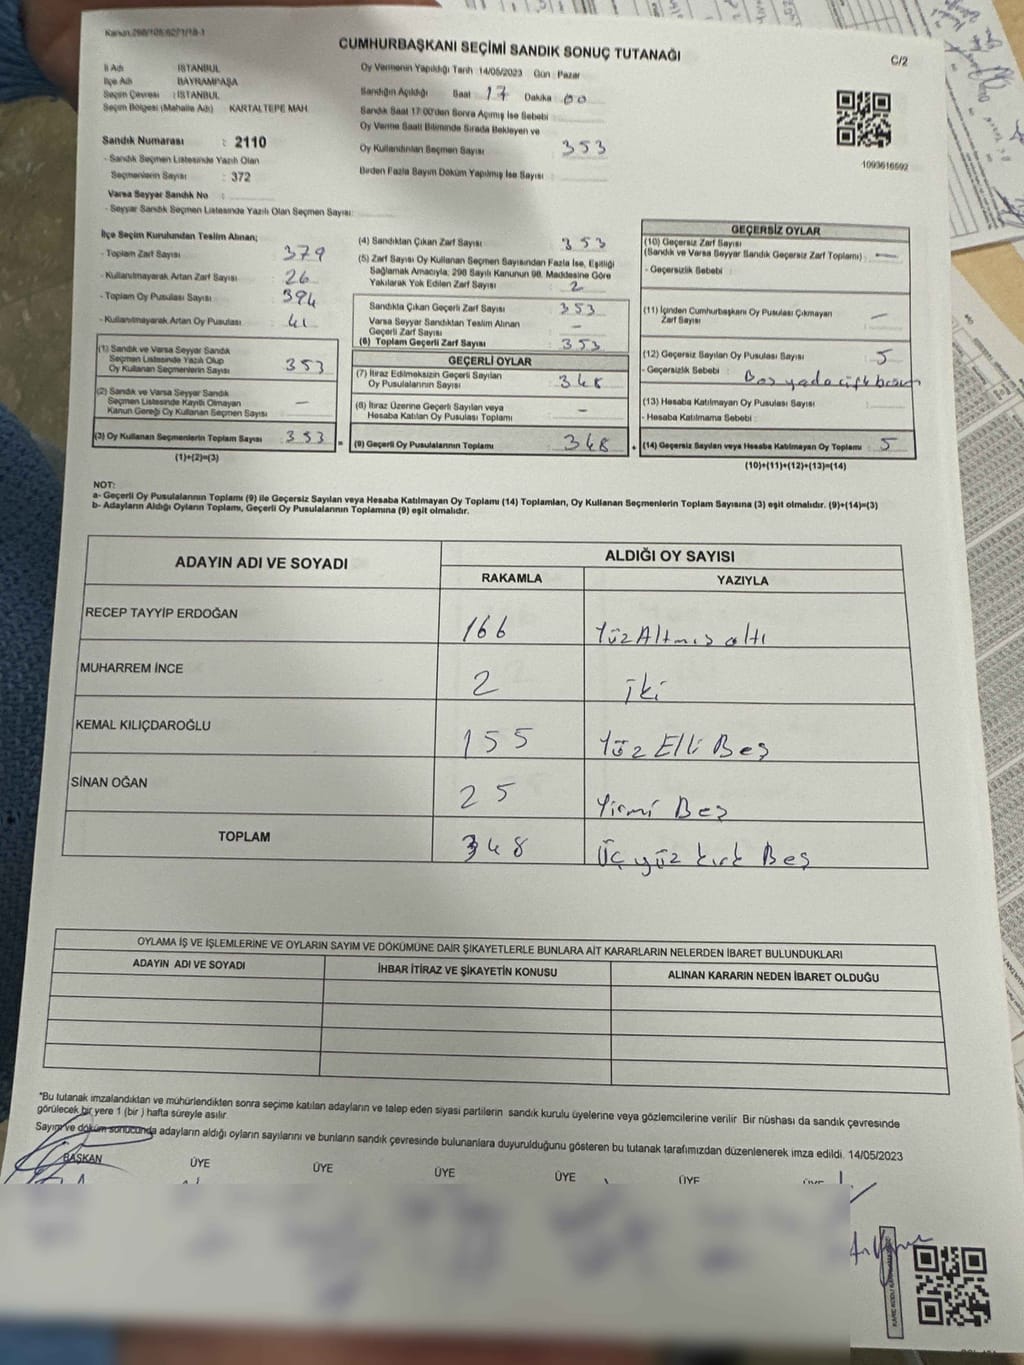 Kanun.298/105;6271/18-1
CUMHURBAŞKANI SEÇİMİ SANDIK SONUÇ TUTANAĞI
C/2
İl Adı : İSTANBUL
İlçe Adı : BAYRAMPAŞA
Seçim Çevresi : İSTANBUL
Seçim Bölgesi (Mahalle Adı) : KARTALTEPE MAH.
Sandık Numarası : 2110
- Sandık Seçmen Listesinde Yazılı Olan
Seçmenlerin Sayısı : 372
Varsa Seyyar Sandık No :
- Seyyar Sandık Seçmen Listesinde Yazılı Olan Seçmen Sayısı:
Oy Vermenin Yapıldığı Tarih :14/05/2023 Gün : Pazar
Sandığın Açıldığı Saat : 17 Dakika : 00
Sandık Saat 17:00'den Sonra Açımış İse Sebebi :
Oy Verme Saati Bitiminde Sırada Bekleyen ve
Oy Kullandırılan Seçmen Sayısı : 353
Birden Fazla Sayım Döküm Yapılmış İse Sayısı :
1093616592
İlçe Seçim Kurulundan Teslim Alınan;
- Toplam Zarf Sayısı : 379
- Kullanılmayarak Artan Zarf Sayısı : 26
- Toplam Oy Pusulası Sayısı : 394
- Kullanılmayarak Artan Oy Pusulası : 41
(1) Sandık ve Varsa Seyyar Sandık
Seçmen Listesinde Yazılı Olup
Oy Kullanan Seçmenlerin Sayısı : 353
(2) Sandık ve Varsa Seyyar Sandık
Seçmen Listesinde Kayıtlı Olmayan
Kanun Gereği Oy Kullanan Seçmen Sayısı : –
(3) Oy Kullanan Seçmenlerin Toplam Sayısı : 353
(1)+(2)=(3)
(4) Sandıktan Çıkan Zarf Sayısı : 353
(5) Zarf Sayısı Oy Kullanan Seçmen Sayısından Fazla İse, Eşitliği
Sağlamak Amacıyla, 298 Sayılı Kanunun 98. Maddesine Göre
Yakılarak Yok Edilen Zarf Sayısı : 2
Sandıkta Çıkan Geçerli Zarf Sayısı : 353
Varsa Seyyar Sandıktan Teslim Alınan
Geçerli Zarf Sayısı : –
(6) Toplam Geçerli Zarf Sayısı : 353
GEÇERLİ OYLAR
(7) İtiraz Edilmeksizin Geçerli Sayılan
Oy Pusulalarının Sayısı : 348
(8) İtiraz Üzerine Geçerli Sayılan veya
Hesaba Katılan Oy Pusulası Toplamı : –
= (9) Geçerli Oy Pusulalarının Toplamı : 348
GEÇERSİZ OYLAR
(10) Geçersiz Zarf Sayısı
(Sandık ve Varsa Seyyar Sandık Geçersiz Zarf Toplamı) : –
- Geçersizlik Sebebi :
(11) İçinden Cumhurbaşkanı Oy Pusulası Çıkmayan
Zarf Sayısı : –
(12) Geçersiz Sayılan Oy Pusulası Sayısı : 5
- Geçersizlik Sebebi : Boş yada çift
(13) Hesaba Katılmayan Oy Pusulası Sayısı :
- Hesaba Katılmama Sebebi :
+ (14) Geçersiz Sayılan veya Hesaba Katılmayan Oy Toplamı : 5
(10)+(11)+(12)+(13)=(14)
NOT:
a- Geçerli Oy Pusulalarının Toplamı (9) ile Geçersiz Sayılan veya Hesaba Katılmayan Oy Toplamı (14) Toplamları, Oy Kullanan Seçmenlerin Toplam Sayısına (3) eşit olmalıdır. (9)+(14)=(3)
b- Adayların Aldığı Oyların Toplamı, Geçerli Oy Pusulalarının Toplamına (9) eşit olmalıdır.
ADAYIN ADI VE SOYADI ALDIĞI OY SAYISI
RAKAMLA YAZIYLA
RECEP TAYYİP ERDOĞAN 166 Yüz Altmış altı
MUHARREM İNCE 2 iki
KEMAL KILIÇDAROĞLU 155 Yüz Elli Beş
SİNAN OĞAN 25 Yirmi Beş
TOPLAM 348 Üç yüz kırk Beş
OYLAMA İŞ VE İŞLEMLERİNE VE OYLARIN SAYIM VE DÖKÜMÜNE DAİR ŞİKAYETLERLE BUNLARA AİT KARARLARIN NELERDEN İBARET BULUNDUKLARI
ADAYIN ADI VE SOYADI İHBAR İTİRAZ VE ŞİKAYETİN KONUSU ALINAN KARARIN NEDEN İBARET OLDUĞU
"Bu tutanak imzalandıktan ve mühürlendikten sonra seçime katılan adayların ve talep eden siyasi partilerin sandık kurulu üyelerine veya gözlemcilerine verilir. Bir nüshası da sandık çevresinde
görülecek bir yere 1 (bir ) hafta süreyle asılır.
Sayım ve döküm sonucunda adayların aldığı oyların sayılarını ve bunların sandık çevresinde bulunanlara duyurulduğunu gösteren bu tutanak tarafımızdan düzenlenerek imza edildi. 14/05/2023
BAŞKAN ÜYE ÜYE ÜYE ÜYE ÜYE ÜYE